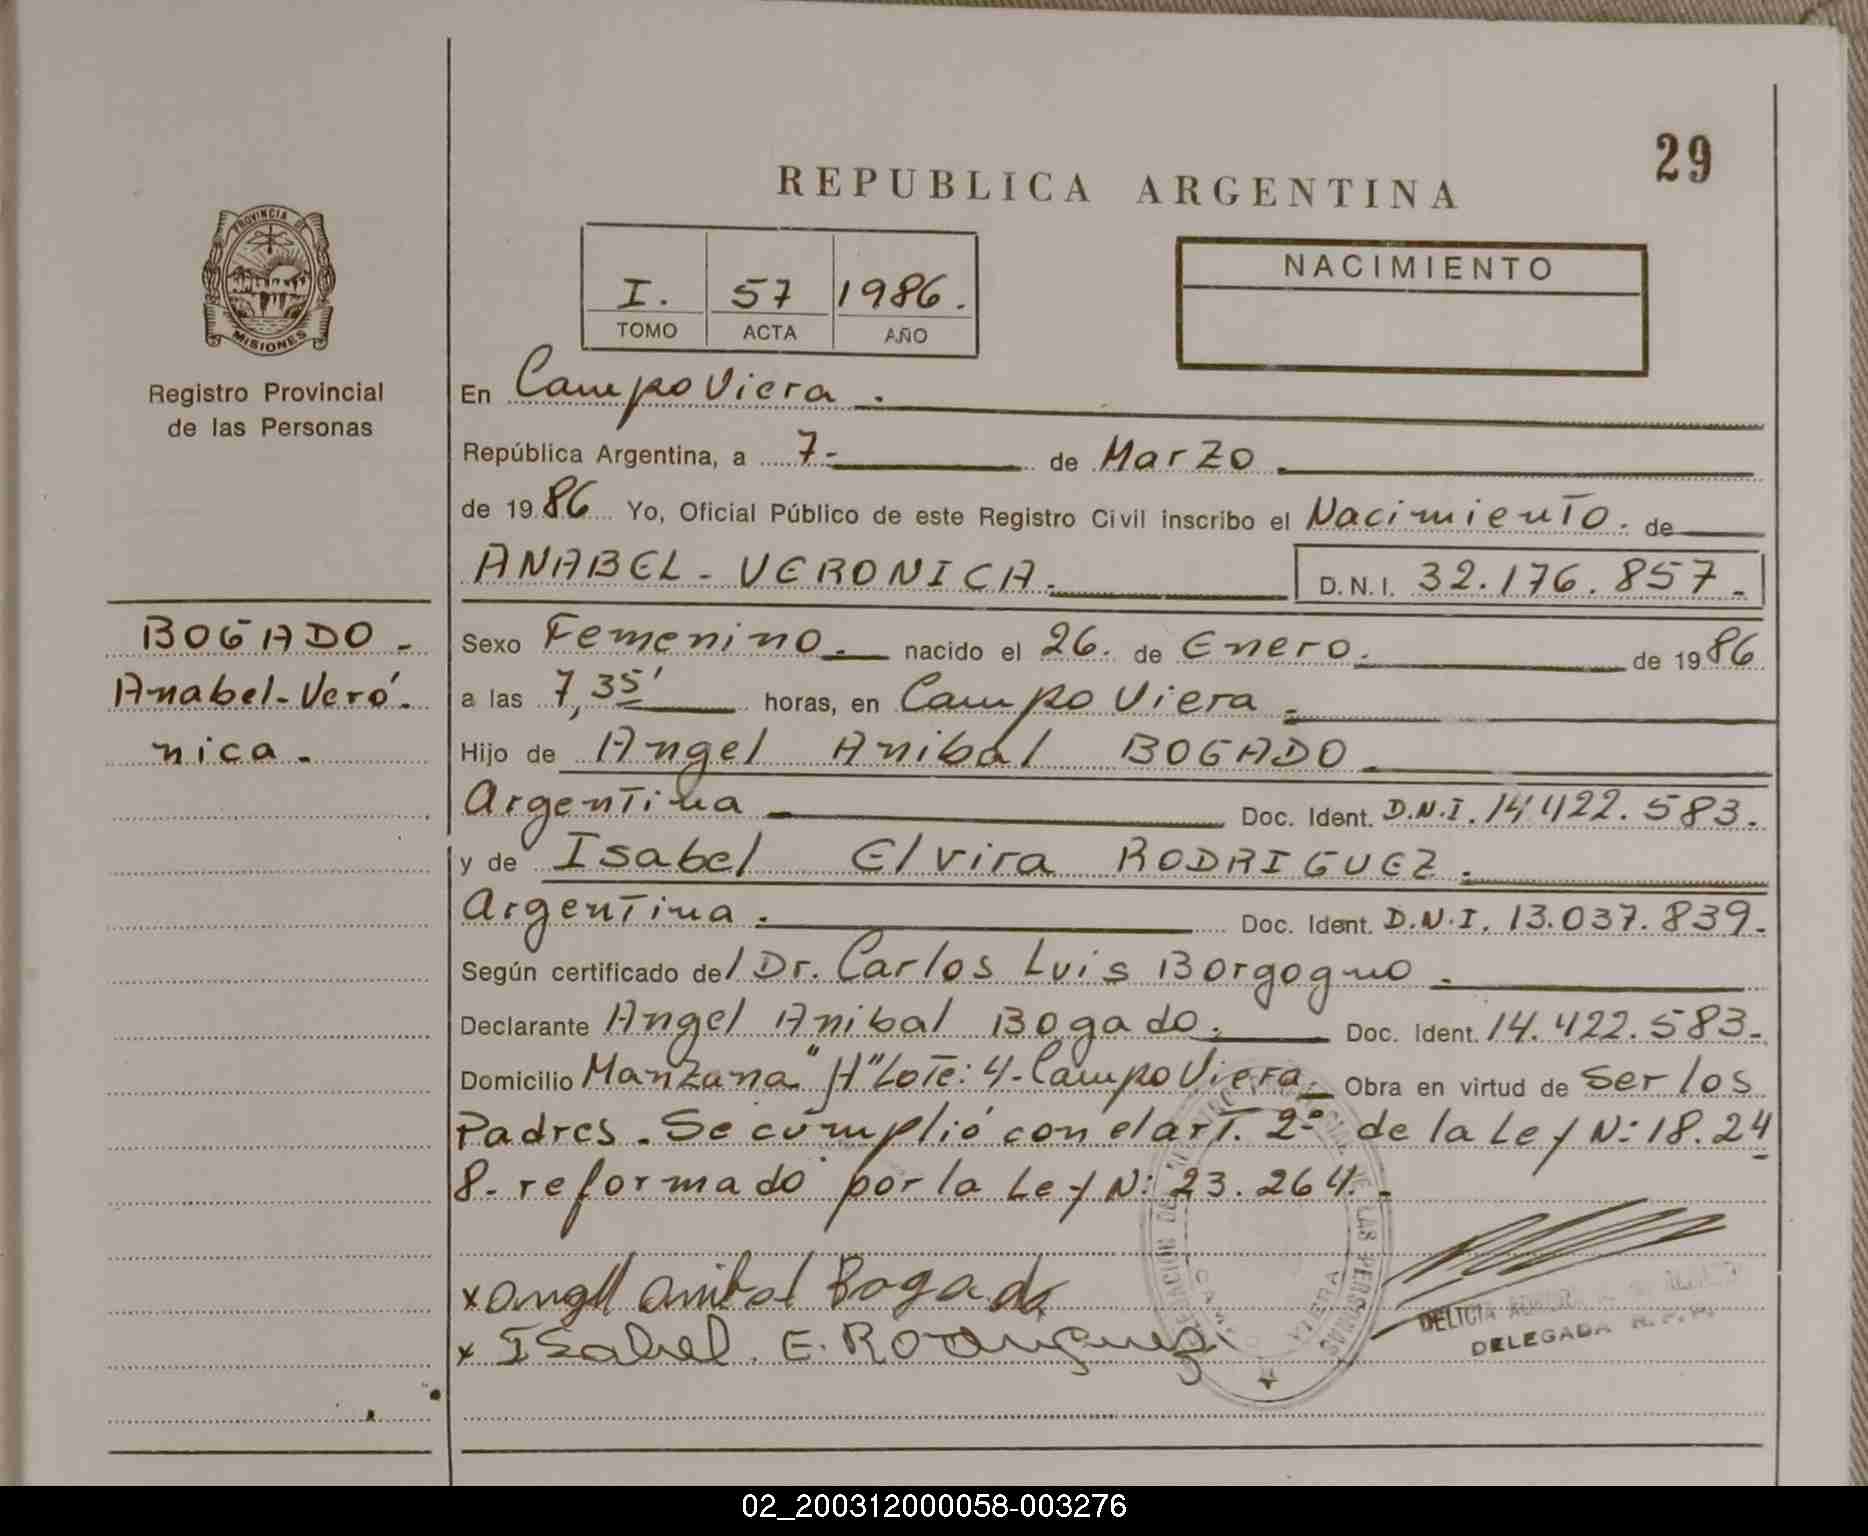 29
REPUBLICA ARGENTINA
PROVINCIA DE
MISIONES
Registro Provincial
de las Personas
I. 57 1986.
TOMO ACTA AÑO
NACIMIENTO
En Campo Viera.
República Argentina, a 7- de Marzo
de 1986 Yo, Oficial Público de este Registro Civil inscribo el Nacimiento. de
ANABEL - VERONICA. D.N.I. 32.176.857.-
BOGADO -
Anabel-Veró.
nica.
Sexo Femenino. nacido el 26. de Enero. de 1986
a las 7,35' horas, en Campo Viera
Hijo de Angel Anibal BOGADO
Argentina Doc. Ident. D.N.I. 14.422.583.
y de Isabel Elvira RODRIGUEZ.
Argentina. Doc. Ident. D.N.I. 13.037.839.-
Según certificado del Dr. Carlos Luis Borgogno
Declarante Angel Anibal Bogado. Doc. Ident. 14.422.583.-
Domicilio Manzana "H" Lote: 4-Campo Viera. Obra en virtud de ser los
Padres. Se cumplió con el art. 2º de la Ley N: 18.24
8.- reformado por la Ley N: 23.264.-
x Angel Anibal Bogado
x Isabel. E. Rodriguez
DELICIA
DELEGADA R.P.P.
DELEGACION DEL REGISTRO PROVINCIAL DE LAS PERSONAS
CAMPO VIERA
02_200312000058-003276